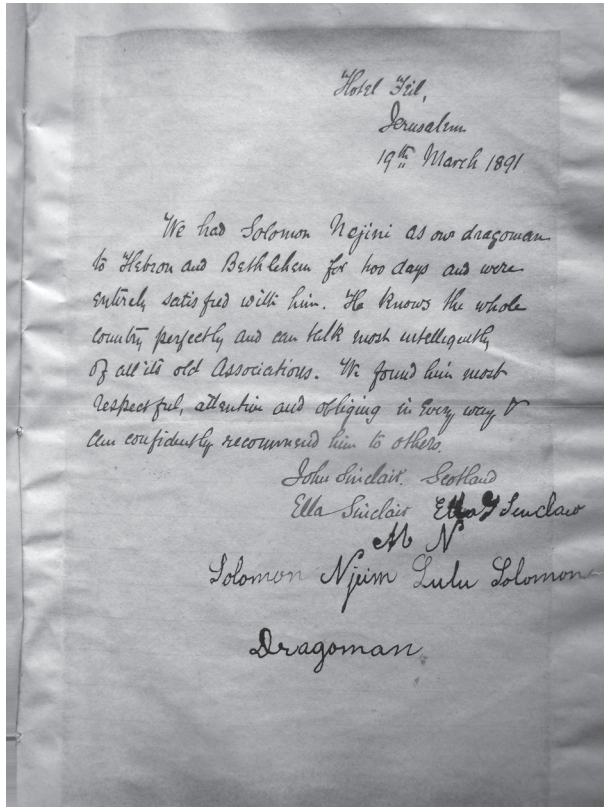 Hotel Feil,
Jerusalem
19th March 1891
We had Solomon Nejini as our dragoman
to Hebron and Bethlehem for two days and were
entirely satisfied with him. He knows the whole
country perfectly and can talk most intelligently
of all its old Associations. We found him most
respectful, attentive and obliging in every way &
can confidently recommend him to others.
John Sinclair. Scotland
Ella Sinclair Ella Sinclair
M N
Solomon Njeim Lulu Solomon
Dragoman